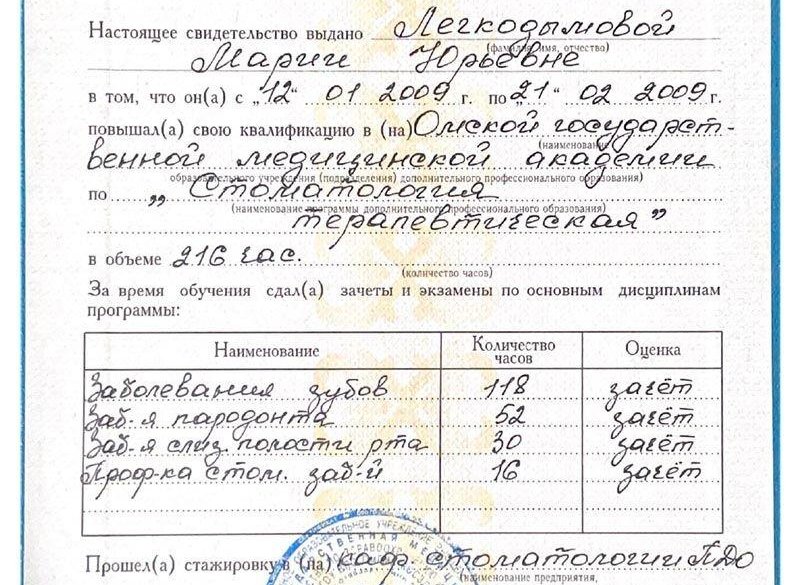 Настоящее свидетельство выдано Легкодымовой
(фамилия, имя, отчество)
Марии Юрьевне
в том, что он(а) с „12“ 01 2009 г. по „21“ 02 2009 г.
повышал(а) свою квалификацию в (на) Омской государст-
(наименование
венной медицинской академии
образовательного учреждения (подразделения) дополнительного профессионального образования)
по „Стоматология
(наименование программы дополнительного профессионального образования)
терапевтическая”
в объеме 216 час.
(количество часов)
За время обучения сдал(а) зачеты и экзамены по основным дисциплинам
программы:
Наименование Количество часов Оценка
Заболевания зубов 118 зачёт
Заб-я пародонта 52 зачёт
Заб-я слиз. полости рта 30 зачёт
Проф-ка стом. заб-й 16 зачёт
Прошел(а) стажировку в (на) каф. стоматологии ПДО
(наименование предприятия,